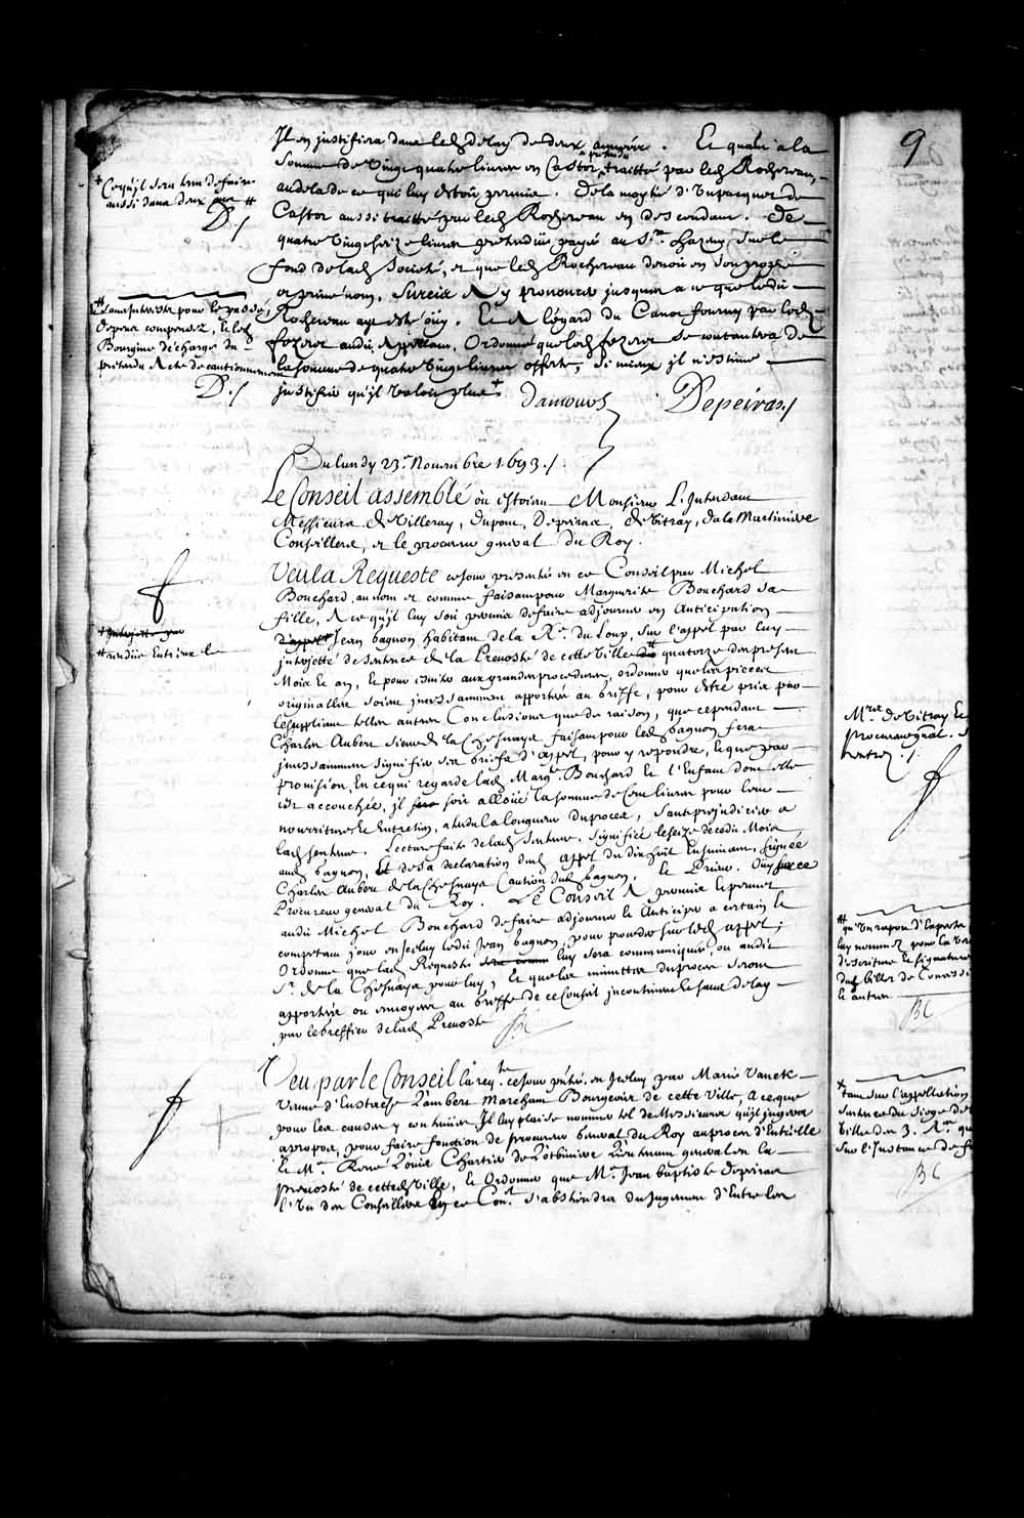 Il en justifiera dans led. delay de deux années. Et quant a la
somme de vingt quatre livres en Castor pretendu traitté par led. Rochereau,
audela de ce qui luy estoit permis. De la moytié d'un pacquet de
Castor aussi traitté par led. Rochereau en descendant. De
quatre vingt seize livres pretendües payés au Sr. chazeray sur le
fond de lad. Societé, et que led. Rochereau denoit en son propre
et privé nom, Surcis A y prononcer jusques a ce que ledit
Rochereau ayt esté oüy. Et A l'égard du Canot fourny par led.
fezeret audit Appellant, Ordonne que led. fezeret se contantera de
la somme de quatre vingt livres offerte, Si mieux il n'estime
justifier qu'il valoit plus
+ Ce qu'il sera tenu de faire
aussi dans deux ans #
D./
# sans interests pour le passé,
depens compensez, le led.
Bourgine déchargé du
pretendu Acte de cautionnement
D./
Damours Depeiras./
Du lundy 23e. Novembre 1693./.
Le Conseil assemblé où estoient Monsieur L'Intendant
Messieurs de Villeray, dupont, Depeiras, de Vitray, de la Martiniere
Conseillers, et le procureur general du Roy.
Veu la Requeste ce jour presentée en ce Conseil par Michel
Bouchard, au nom et comme faisant pour Marguerite Bouchard sa
fille, A ce qu'il luy soit permis de faire adjourner en Anticipation
d'appel Jean Gagnon habitant de la Rre. du Loup, sur l'appel par luy
interjetté de sentence de la Prevosté de cette Ville du # quatorze du present
Mois et an, et pour ensuite aux grandes procedures, ordonner que les pieces
originalles soient incessamment apportées au Greffe, pour estre pris par
le supliant telles autres Conclusions que de raison, que cependant
Charles Aubert Sieur de la Chesnaye faisant pour led. Gagnon sera
incessamment signifier ses griefs d'appel, pour y repondre, et que par
provision, En ce qui regarde lad. Margte. Bouchard et l'Enfant dont elle
est accouchée, il soit alloüé la somme de Cent livres pour leur
nourriture et Entretien, attendu la longueur du procez, sans prejudicier a
lad. sentence. Lecture faite de lad. sentence. Signifiée le seize de cedit Mois
aud. Gagnon, et de sa declaration dud. appel du dix huit Ensuivant, signée
Charles Aubert de la Chesnaye Caution dud. Gagnon, et Prieur. Oüy sur ce
Procureur general du Roy. Le Conseil A permis et permet
audit Michel Bouchard de faire adjourner et Anticiper a certain et
competant jour en Iceluy ledit Jean Gagnon, pour proceder sur led. appel;
Ordonne que lad. Requeste luy sera communiquée, ou audit
Sr. de la Chesnaye pour luy, et que les minuttes du procez seront
apportées ou envoyées au Greffe de ce Conseil incontinant et sans delay
par le Greffier de lad. Prevosté
# rendüe Entr'eux le
Veu par le Conseil la reqte. ce jour pntée. en Iceluy par Marie Vanek
veuve d'Eustache Lambert Marchant Bourgeois de cette Ville, A ce que
pour les causes y contenües, Il luy plaise nommer tel de Messieurs qu'il jugera
apropos, pour faire fonction de procureur general du Roy au procez d'Entr'elle
et Me. René Louis Chartier de Lotbiniere Lieutenant general en la
prevosté de cetted. Ville, et Ordonner que Me. Jean baptiste depeiras
l'un des Conseillers En ce Conl. s'abstiendra du Jugement d'Entre les
9
Mrs. de Vitray Et
Procureur gnal. s
rentrez ./.
# qu'un raport d'Experts
luy nommez pour la ver
d'escriture et signature
dud. billet de Conrossi
et autres
BC
+ tant sur l'appellation
sentence du siege de
Ville du 3.
sur l'Instance de
BC